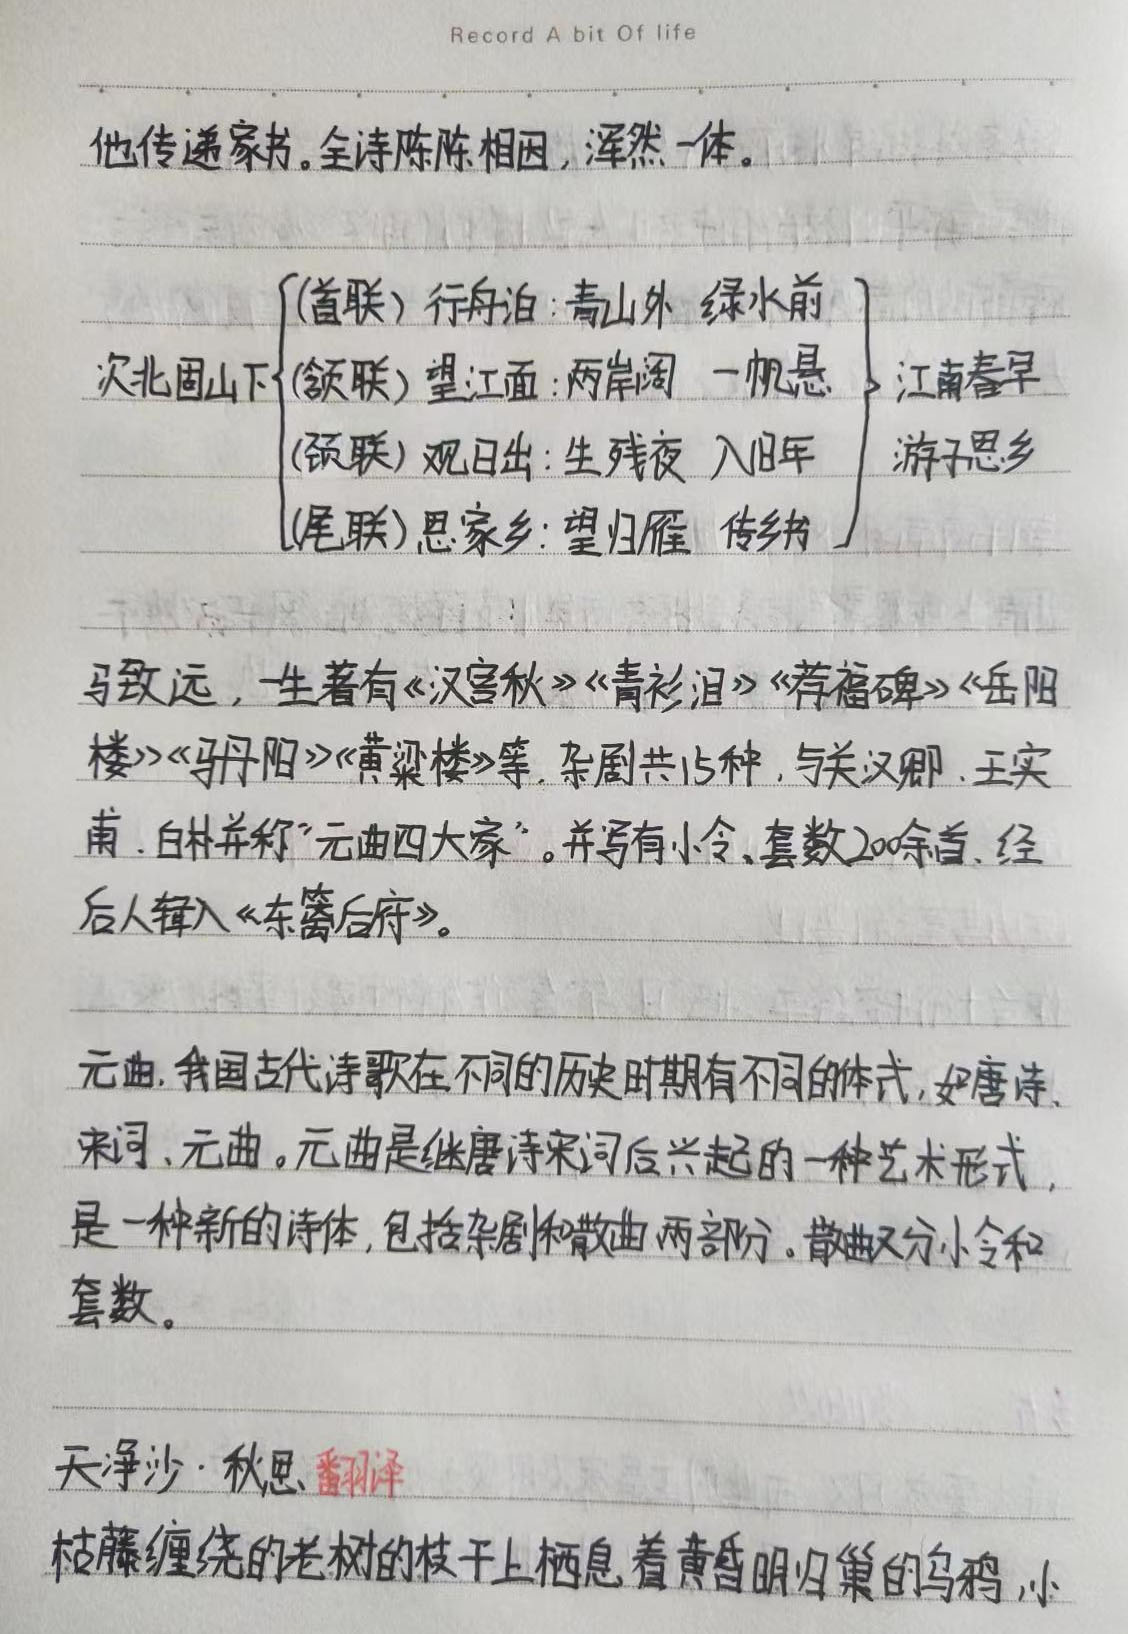 Record A bit Of life
他传递家书。全诗陈陈相因，浑然一体。
(首联) 行舟泊：青山外 绿水前
次北固山下 (颔联) 望江面：两岸阔 一帆悬 江南春早
(颈联) 观日出：生残夜 入旧年 游子思乡
(尾联) 思家乡：望归雁 传乡书
马致远，一生著有《汉宫秋》《青衫泪》《荐福碑》《岳阳
楼》《马丹阳》《黄粱楼》等、杂剧共15种，与关汉卿、王实
甫、白朴并称“元曲四大家”。并写有小令、套数200余首、经
后人辑入《东篱后府》。
元曲，我国古代诗歌在不同的历史时期有不同的体式，如唐诗、
宋词、元曲。元曲是继唐诗宋词后兴起的一种艺术形式，
是一种新的诗体，包括杂剧和散曲两部分。散曲又分小令和
套数。
天净沙·秋思、翻译
枯藤缠绕的老树的枝干上栖息着黄昏明归巢的乌鸦，小